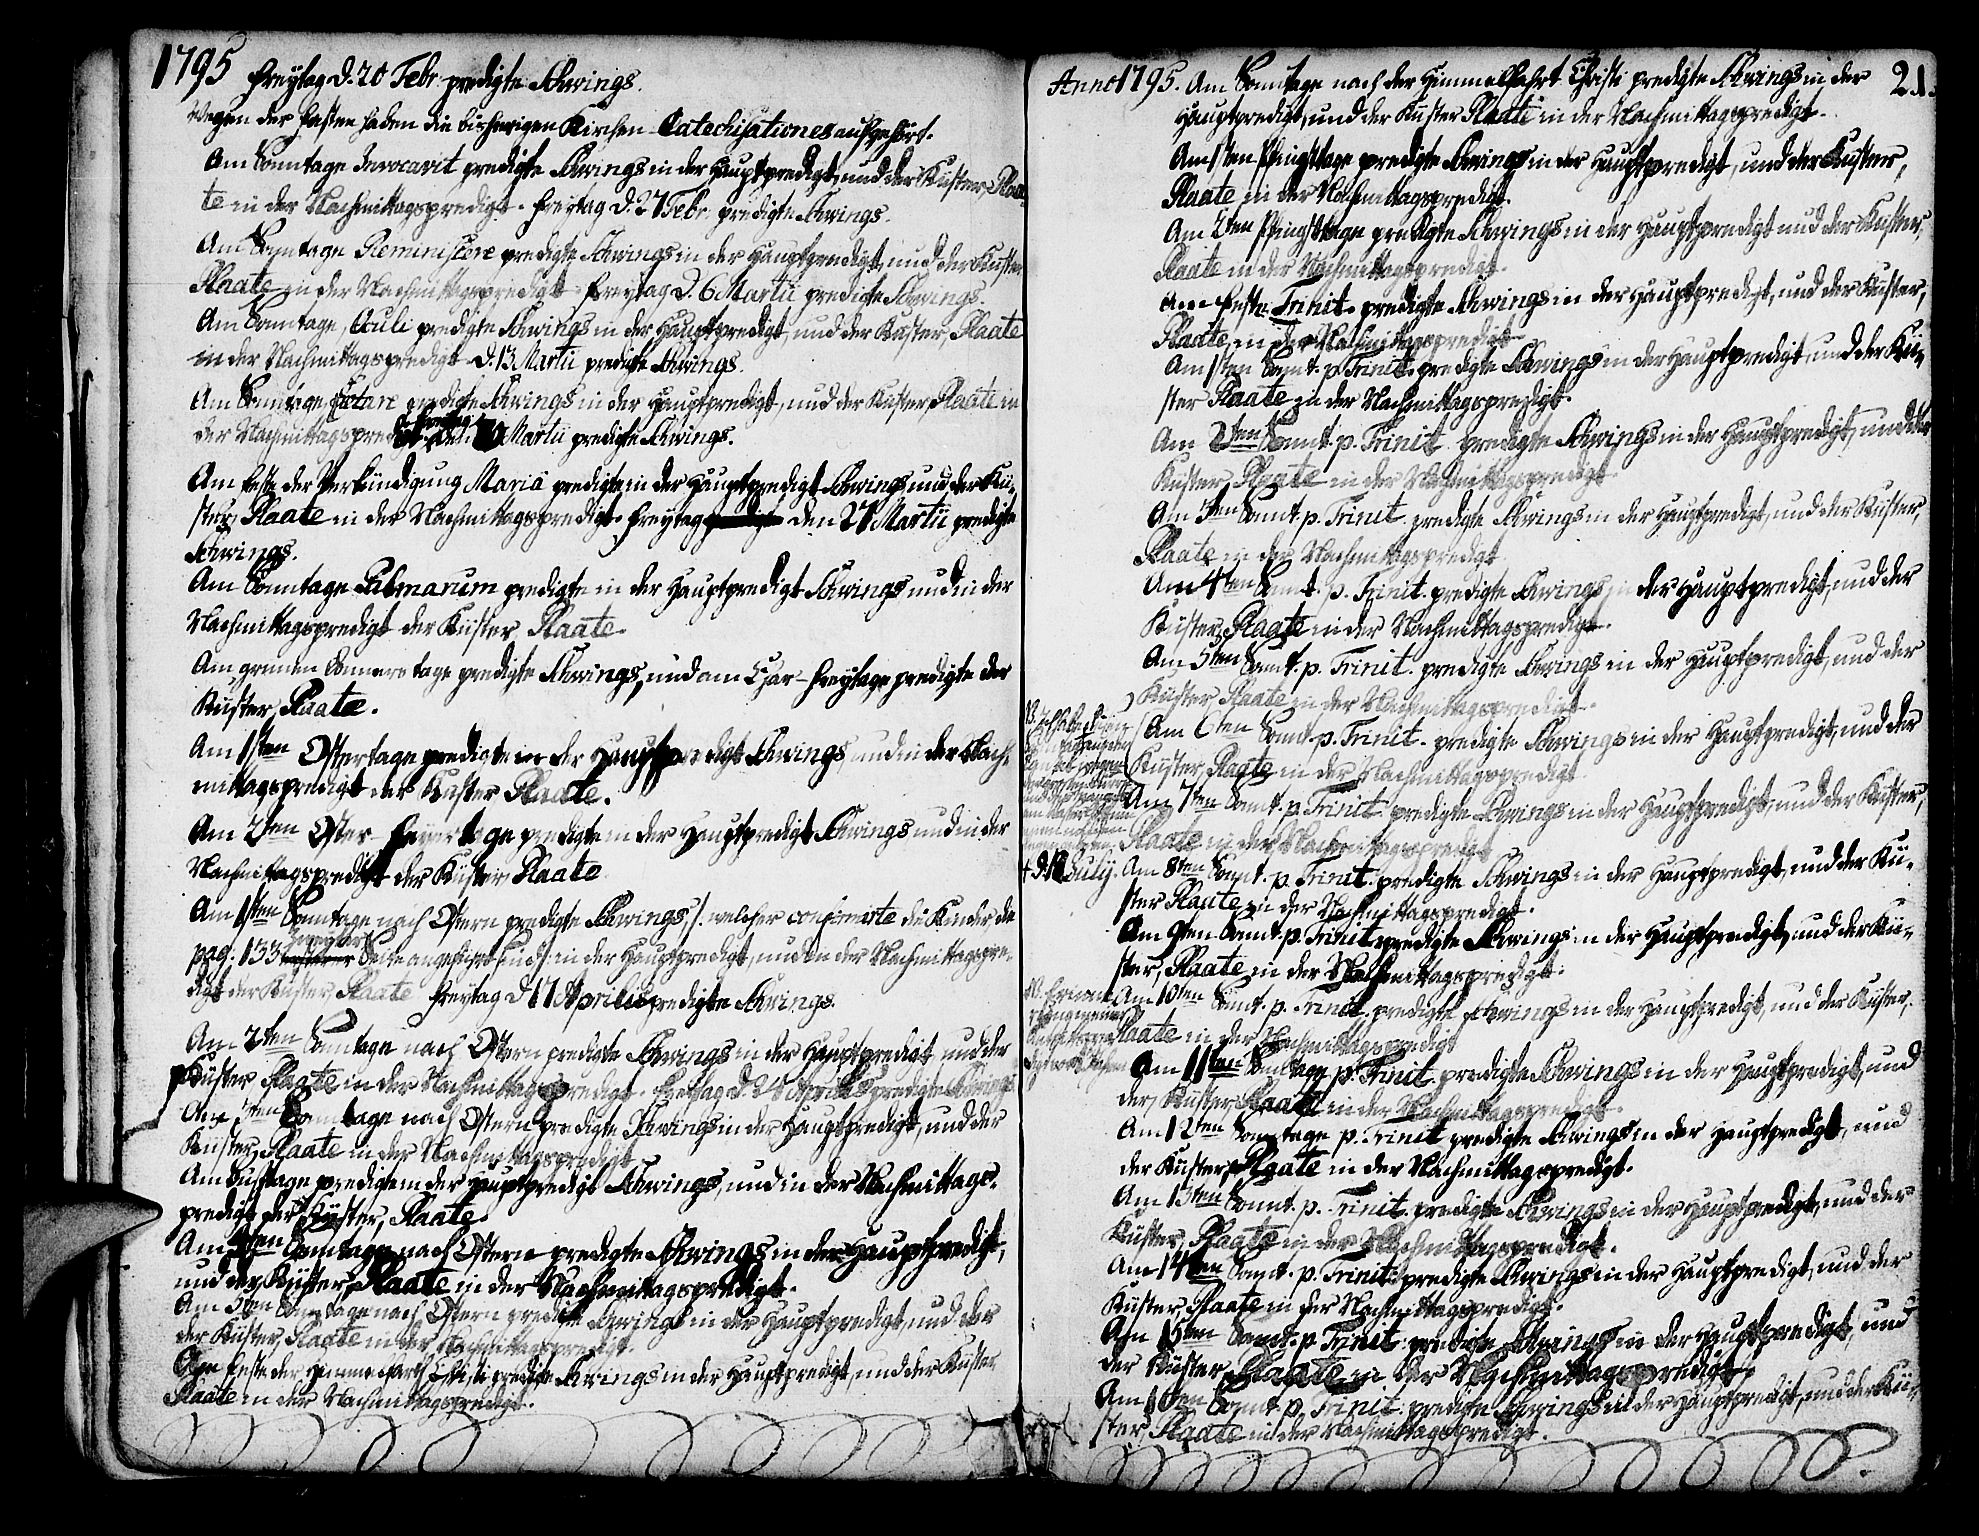 1795 Freytag d. 20 Febr. predigte Schwings.
Wegen der Fasten haben die bisherigen Kirchen-Catechisationes aufgehört.
Am Sonntage Invocavit predigte Schwings in der Hauptpredigt, und der Küster, Plaa-
te in der Nachmittagspredigt. Freytag d. 27 Febr. predigte Schwings.
Am Sonntage Reminiscere predigte Schwings in der Hauptpredigt, und der Küster
Plaate in der Nachmittagspredigt. Freytag d. 6 Martii predigte Schwings.
Am Sonntage, Oculi predigte Schwings in der Hauptpredigt, und der Küster, Plaate
in der Nachmittagspredigt. d. 13 Martii predigte Schwings.
Am Sonntage Lætare predigte Schwings in der Hauptpredigt, und der Küster, Plaate in
der Nachmittagspredigt. Freytag den 20 Martii predigte Schwings.
Am Feste der Verkündigung Mariä predigte in der Hauptpredigt Schwings und der Kü-
ster, Plaate in der Nachmittagspredigt. Freytag den 27 Martii predigte
Schwings.
Am Sonntage Palmarum predigte in der Hauptpredigt Schwings und in der
Nachmittagspredigt der Küster Plaate.
Am grünen Donnerstage predigte Schwings, und am Char-Freytage predigte der
Küster, Plaate.
Am 1sten Ostertage predigte in der Hauptpredigt Schwings, und in der Nach-
mittagspredigt der Küster Plaate.
Am 2ten Oster Feyertage predigte in der Hauptpredigt Schwings und in der
Nachmittagspredigt der Küster Plaate
Am 1sten Sonntage nach Ostern predigte Schwings, /. welcher confirmirte die Kinder, die
pag: 133 Seite angeführt sind ./ in der Hauptpredigt, und in der Nachmittagspre-
digt der Küster, Plaate Freytag d 17 Aprilis predigte Schwings.
Am 2ten Sonntage nach Ostern predigte Schwings in der Hauptpredigt, und der
Küster Plaate in der Nachmittagspredigt. Freytag d. 24 Aprilis predigte Schwings
Am 3ten Sonntage nach Ostern predigte Schwings in der Hauptpredigt, und der
Küster, Plaate in der Nachmittagspredigt.
Am Bußtage predigte in der Hauptpredigt Schwings, und in der Nachmittags-
predigt der Küster, Plaate.
Am 4ten Sonntage nach Ostern predigte Schwings in der Hauptpredigt,
und der Küster, Plaate in der Nachmittagspredigt.
Am 5ten Sonntage nach Ostern predigte Schwings in der Hauptpredigt und der
der Küster, Plaate in der Nachmittagspredigt.
Am Feste der Himmelfarth Christi predigte Schwings in der Hauptpredigt, und der Küster
Plaate in der Nachmittagspredigt.
Anno 1795. Am Sonntage nach der Himmelfahrt Christi predigte Schwings in der 21
Hauptpredigt, und der Küster Plaate in der Nachmittagspredigt.
Am 1sten Pfingsttage predigte Schwings in der Hauptpredigt, und der Küster,
Plaate in der Nachmittagspredigt.
Am 2ten Pfingsttage predigte Schwings in der Hauptpredigt und der Küster,
Plaate in der Nachmittagspredigt.
Am Feste Trinit. predigte Schwings in der Hauptpredigt, und der Küster,
Plaate, in der Nachmittagspredigt
Am 1sten Sonnt. p. Trinit. predigte Schwings in der Hauptpredigt, und der Kü-
ster Plaate in der Nachmittagspredigt.
Am 2ten Sonnt. p. Trinit. predigte Schwings in der Hauptpredigt, und der
Küster, Plaate in der Nachmittagspredigt
Am 3ten Sonnt. p. Trinit. predigte Schwings in der Hauptpredigt, und der Küster,
Plaate in der Nachmittagspredigt
Am 4ten Sonnt. p. Trinit. predigte Schwings in der Hauptpredigt, und der
Küster, Plaate in der Nachmittagspredigt.
Am 5ten Sonnt. p. Trinit. predigte Schwings in der Hauptpredigt, und der
Küster, Plaate in der Nachmittagspredigt.
Am 6ten Sonnt. p. Trinit. predigte Schwings in der Hauptpredigt, und der
Küster, Plaate in der Nachmittagspredigt.
Am 7ten Sonnt. p. Trinit. predigte Schwings in der Hauptpredigt, und der Küster,
Plaate in der Nachmittagspredigt
July. Am 8ten Sonnt. p. Trinit. predigte Schwings in der Hauptpredigt, und der Kü-
ster Plaate in der Nachmittagspredigt.
Am 9ten Sonnt. p. Trinit predigte Schwings in der Hauptpredigt, und der Kü-
ster, Plaate in der Nachmittagspredigt.
Am 10ten Sonnt. p. Trinit. predigte Schwings in der Hauptpredigt, und der Küster,
Plaate in der Nachmittagspredigt
Am 11ten Sonntage p. Trinit. predigte Schwings in der Hauptpredigt, und
der, Küster, Plaate in der Nachmittagspredigt.
Am 12ten Sonntage p. Trinit predigte Schwings in der Hauptpredigt, und
der Küster, Plaate in der Nachmittagspredigt.
Am 13ten Sonnt. p. Trinit. predigte Schwings in der Hauptpredigt, und der
Küster, Plaate in der Nachmittagspredigt.
Am 14ten Sonnt. p. Trinit: predigte Schwings in der Hauptpredigt, und der
Küster, Plaate in der Nachmittagspredigt.
Am 15ten Sonnt. p. Trinit. predigte Schwings in der Hauptpredigt, und
der Küster, Plaate in der Nachmittagspredigt.
Am 16ten Sonnt. p. Trinit. predigte Schwings in der Hauptpredigt, und der Kü-
ster, Plaate in der Nachmittagspredigt.